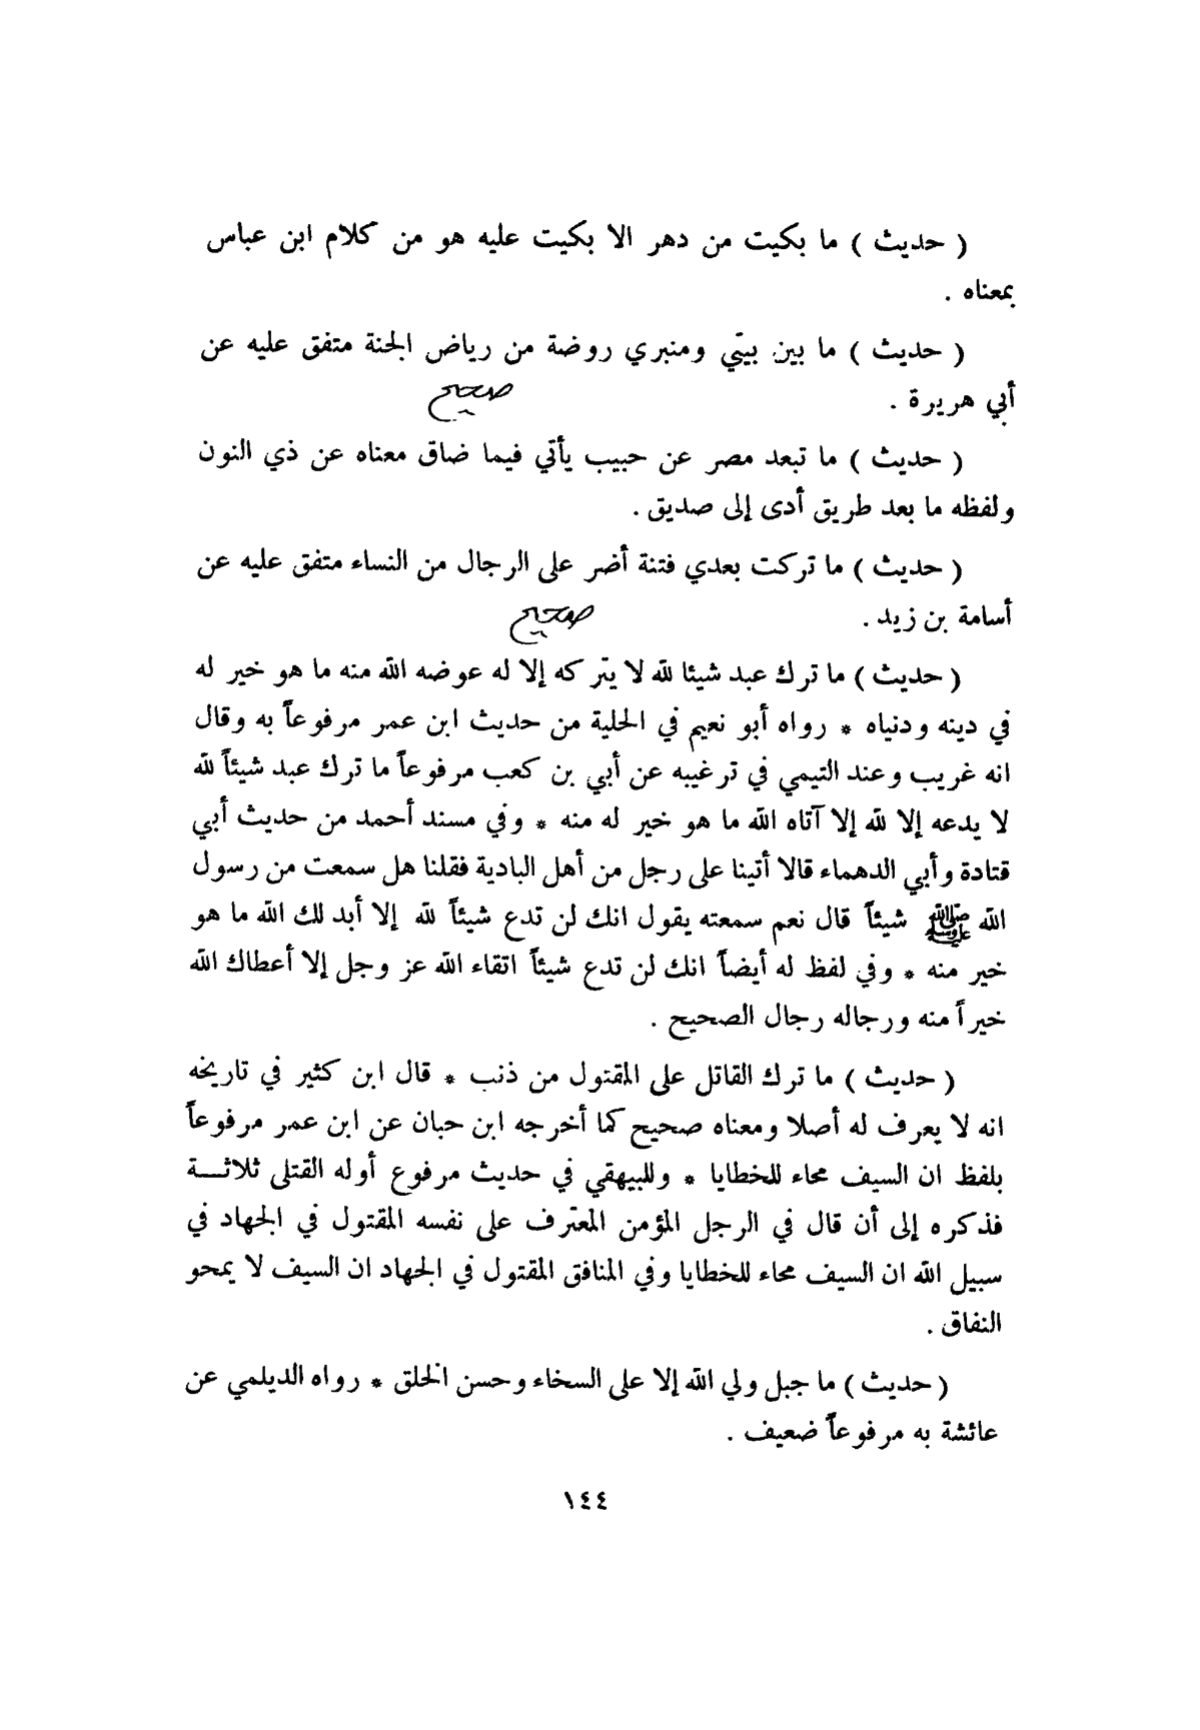 ( حديث ) ما بكيت من دهر الا بكيت عليه هو من كلام ابن عباس
بمعناه .
( حديث ) ما بين بيتي ومنبري روضة من رياض الجنة متفق عليه عن
أبي هريرة .
صحيح
( حديث ) ما تبعد مصر عن حبيب يأتي فيما ضاق معناه عن ذي النون
ولفظه ما بعد طريق أدى إلى صديق .
( حديث ) ما تركت بعدي فتنة أضر على الرجال من النساء متفق عليه عن
أسامة بن زيد .
صحيح
( حديث ) ما ترك عبد شيئا لله لا يتركه إلا له عوضه الله منه ما هو خير له
في دينه ودنياه * رواه أبو نعيم في الحلية من حديث ابن عمر مرفوعاً به وقال
انه غريب وعند التيمي في ترغيبه عن أبي بن كعب مرفوعاً ما ترك عبد شيئاً لله
لا يدعه إلا لله إلا آتاه الله ما هو خير له منه * وفي مسند أحمد من حديث أبي
قتادة وأبي الدهماء قالا أتينا على رجل من أهل البادية فقلنا هل سمعت من رسول
الله ﷺ شيئاً قال نعم سمعته يقول انك لن تدع شيئاً لله إلا أبد لك الله ما هو
خير منه * وفي لفظ له أيضاً انك لن تدع شيئاً اتقاء الله عز وجل إلا أعطاك الله
خيراً منه ورجاله رجال الصحيح .
( حديث ) ما ترك القاتل على المقتول من ذنب * قال ابن كثير في تاريخه
انه لا يعرف له أصلا ومعناه صحيح كما أخرجه ابن حبان عن ابن عمر مرفوعاً
بلفظ ان السيف محاء للخطايا * وللبيهقي في حديث مرفوع أوله القتلى ثلاثـــة
فذكره إلى أن قال في الرجل المؤمن المعترف على نفسه المقتول في الجهاد في
سبيل الله ان السيف محاء للخطايا وفي المنافق المقتول في الجهاد ان السيف لا يمحو
النفاق .
( حديث ) ما جبل ولي الله إلا على السخاء وحسن الخلق * رواه الديلمي عن
عائشة به مرفوعاً ضعيف .
١٤٤